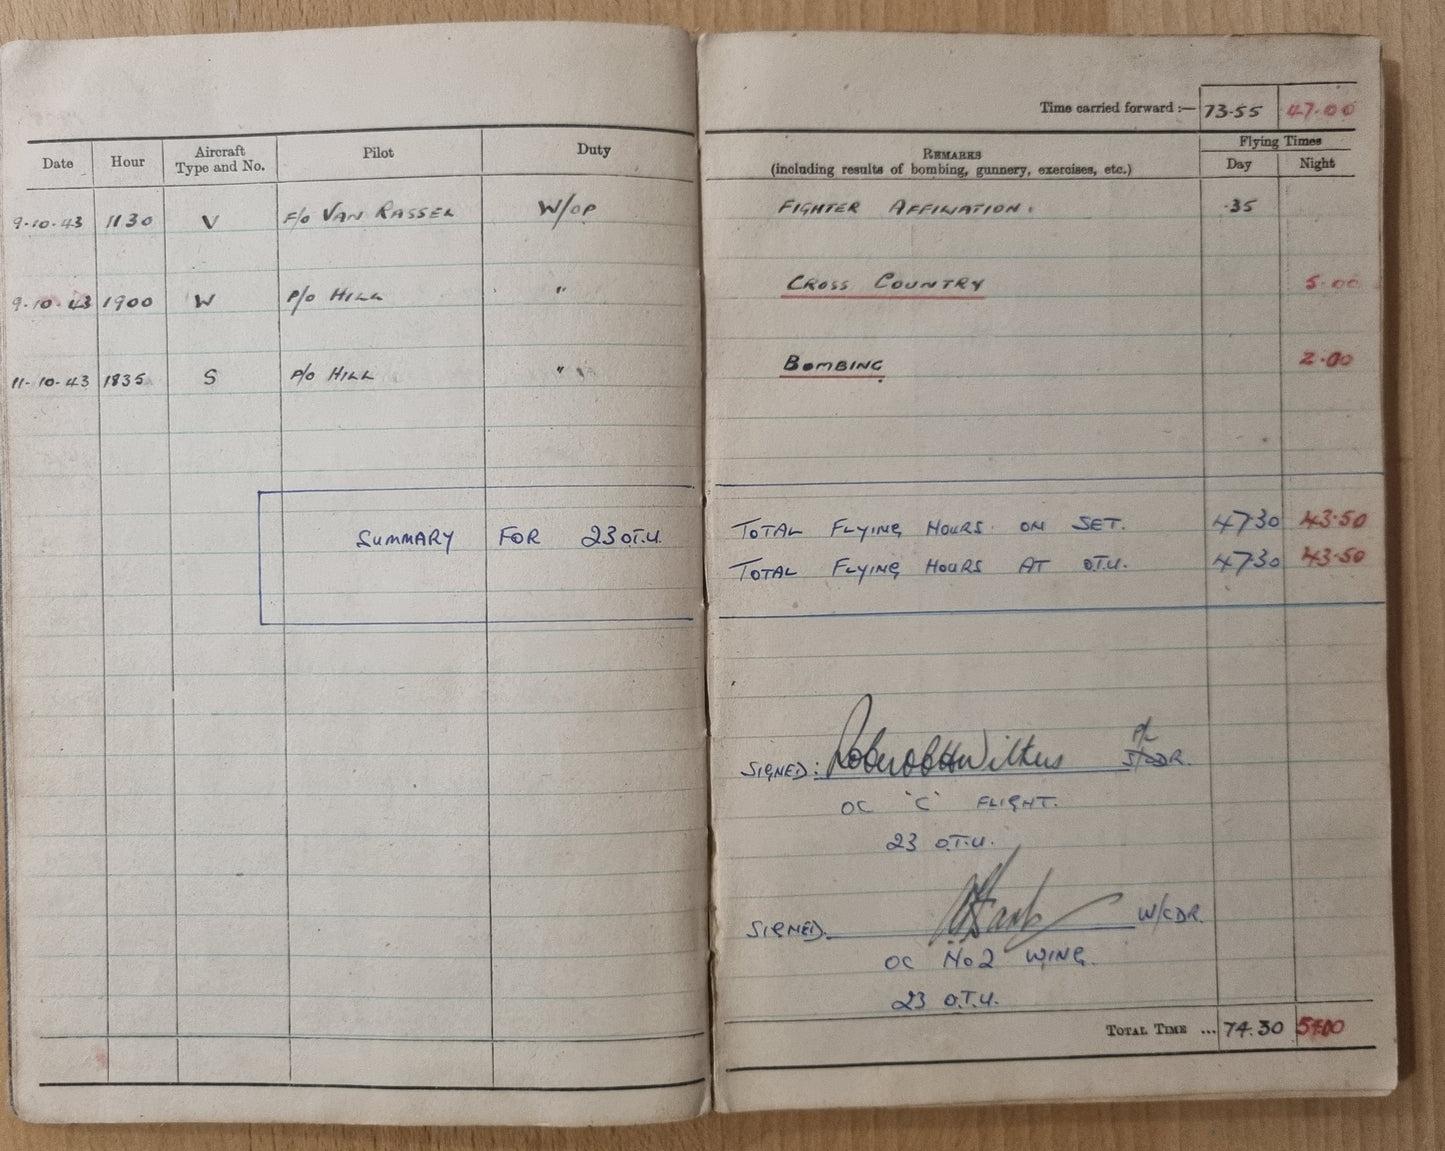 Time carried forward :— 73·55 47·00
Date Hour Aircraft Type and No. Pilot Duty
REMARKS (including results of bombing, gunnery, exercises, etc.) Flying Times Day Night
9·10·43 1130 V F/O VAN RASSEL W/OP FIGHTER AFFILIATION. ·35
9·10·43 1900 W P/O HILL " CROSS COUNTRY 5·00
11·10·43 1835 S P/O HILL " BOMBING 2·00
SUMMARY FOR 23 O.T.U. TOTAL FLYING HOURS ON SET. 47·30 43·50
TOTAL FLYING HOURS AT O.T.U. 47·30 43·50
SIGNED: S/LDR.
OC 'C' FLIGHT.
23 O.T.U.
SIGNED. W/CDR.
OC No 2 WING.
23 O.T.U.
TOTAL TIME ... 74·30